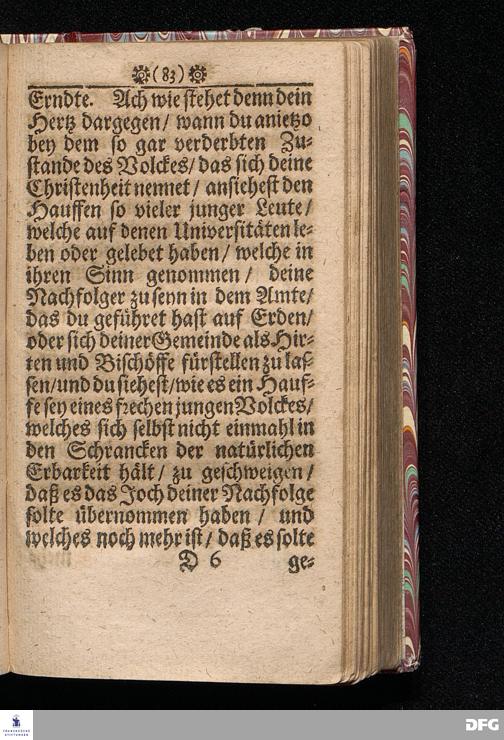 (83)
Erndte. Ach wie stehet denn dein
Hertz dargegen/ wann du anietzo
bey dem so gar verderbten Zu-
stande des Volckes/ das sich deine
Christenheit nennet/ ansiehest den
Hauffen so vieler junger Leute/
welche auf denen Universitäten le-
ben oder gelebet haben/ welche in
ihren Sinn genommen/ deine
Nachfolger zu seyn in dem Amte/
das du geführet hast auf Erden/
oder sich deiner Gemeinde als Hir-
ten und Bischöffe fürstellen zu las-
sen/und du siehest/wie es ein Hauf-
fe sey eines frechen jungen Volckes/
welches sich selbst nicht einmahl in
den Schrancken der natürlichen
Erbarkeit hält/ zu geschweigen/
daß es das Joch deiner Nachfolge
solte übernommen haben/ und
welches noch mehr ist/ daß es solte
D 6 ge-
FRANCKESCHE
STIFTUNGEN
DFG